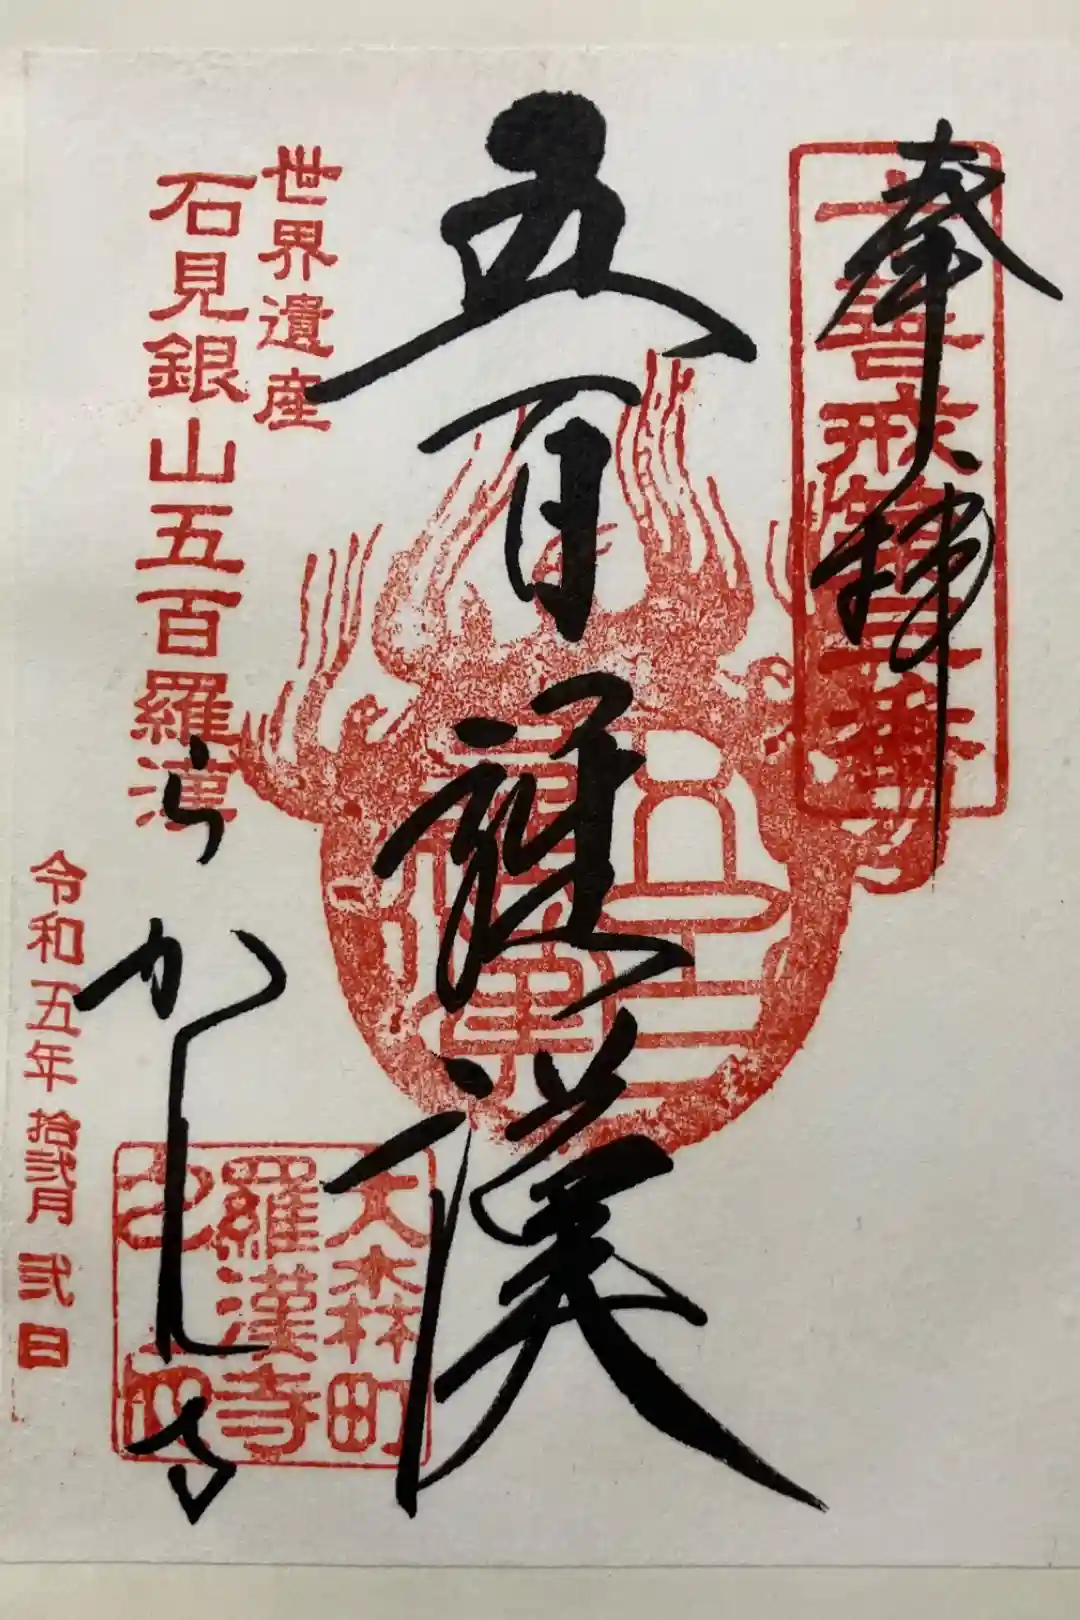 奉拝
五百羅漢
世界遺産
石見銀山五百羅漢
らかんじ
大森町
羅漢寺
令和五年拾弐月弐日